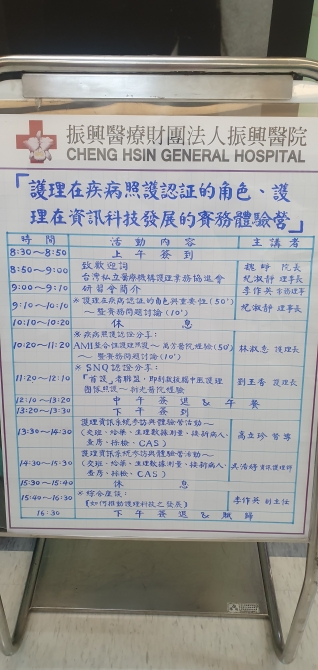 振興醫療財團法人振興醫院
CHENG HSIN GENERAL HOSPITAL
「護理在疾病照護認証的角色、護
理在資訊科技發展的實務體驗營」
時間 活動內容 主講者
8:30~8:50 上午簽到
8:50~9:00 致歡迎詞 魏崢 院長
台灣私立醫療機構護理業務協進會 紀淑靜 理事長
9:00~9:10 研習會簡介 李作英 常務理事
9:10~10:10 *護理在疾病認証的角色與重要性(50')
~暨實務問題討論(10') 紀淑靜 理事長
10:10~10:20 休息
10:20~11:20 *疾病照護認証分享:
AMI整合性護理照護~萬芳醫院經驗(50') 林淑惠 護理長
~暨實務問題討論(10')
11:20~12:10 *SNQ認証分享:
「首護」者聯盟,即刻救援腦中風護理 劉玉香 護理長
團隊照護~新光醫院經驗
12:10~13:20 中午簽退&午餐
13:20~13:30 下午簽到
13:30~14:30 護理資訊系統參訪與體驗營活動~
(交班、給藥、生理數據測量、接新病人、 高立珍 督導
查房、採檢、CAS)
14:30~15:30 護理資訊系統參訪與體驗營活動~
(交班、給藥、生理數據測量、接新病人、 資訊護理師
查房、採檢、CAS)
15:30~15:40 休息
15:40~16:30 *綜合座談:
『如何推動護理科技之發展』 李作英 副主任
16:30 下午簽退&賦歸